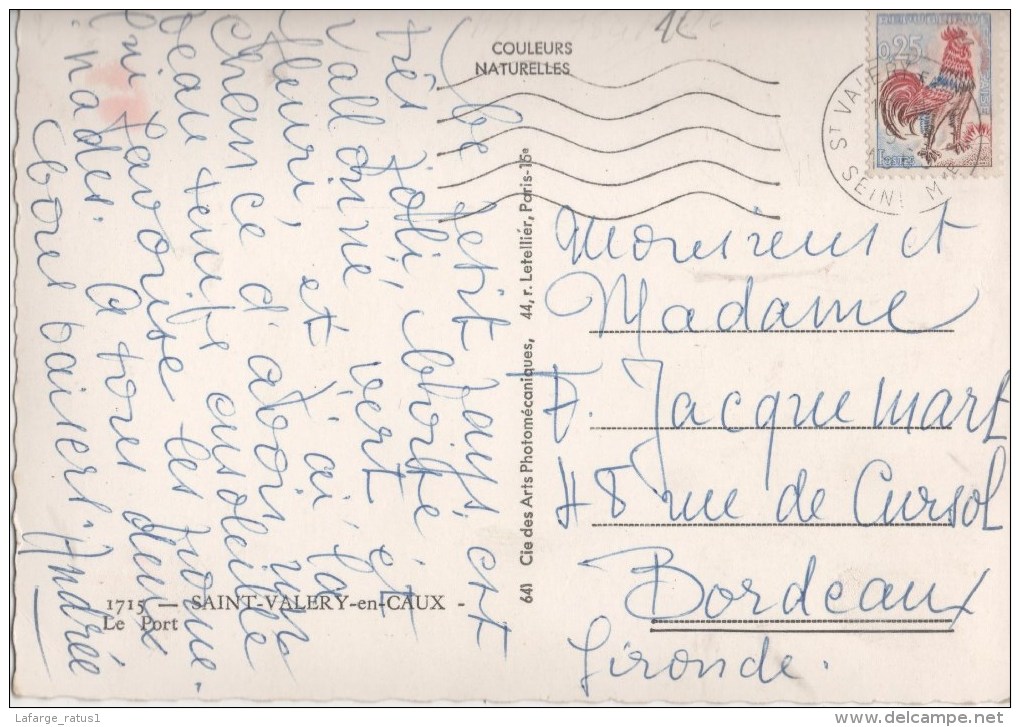 COULEURS
NATURELLES
REPUBLIQUE
0,25
Postes
ST VALERY
SEINE
Ce petit pays est
très joli, boisé et
vallonné, et vert et
fleuri, j'ai la
chance d'avoir un
beau temps ensoleillé
qui favorise les prome-
nades. A tous deux
bons baisers. Andrée
1715 — SAINT-VALERY-en-CAUX -
Le Port
641 Cie des Arts Photomécaniques, 44, r. Letellier, Paris-15e
Monsieur et
Madame
F. Jacquemart
48 rue de Cursol
Bordeaux
Gironde.
Lafarge_ratus1
delcampe.net